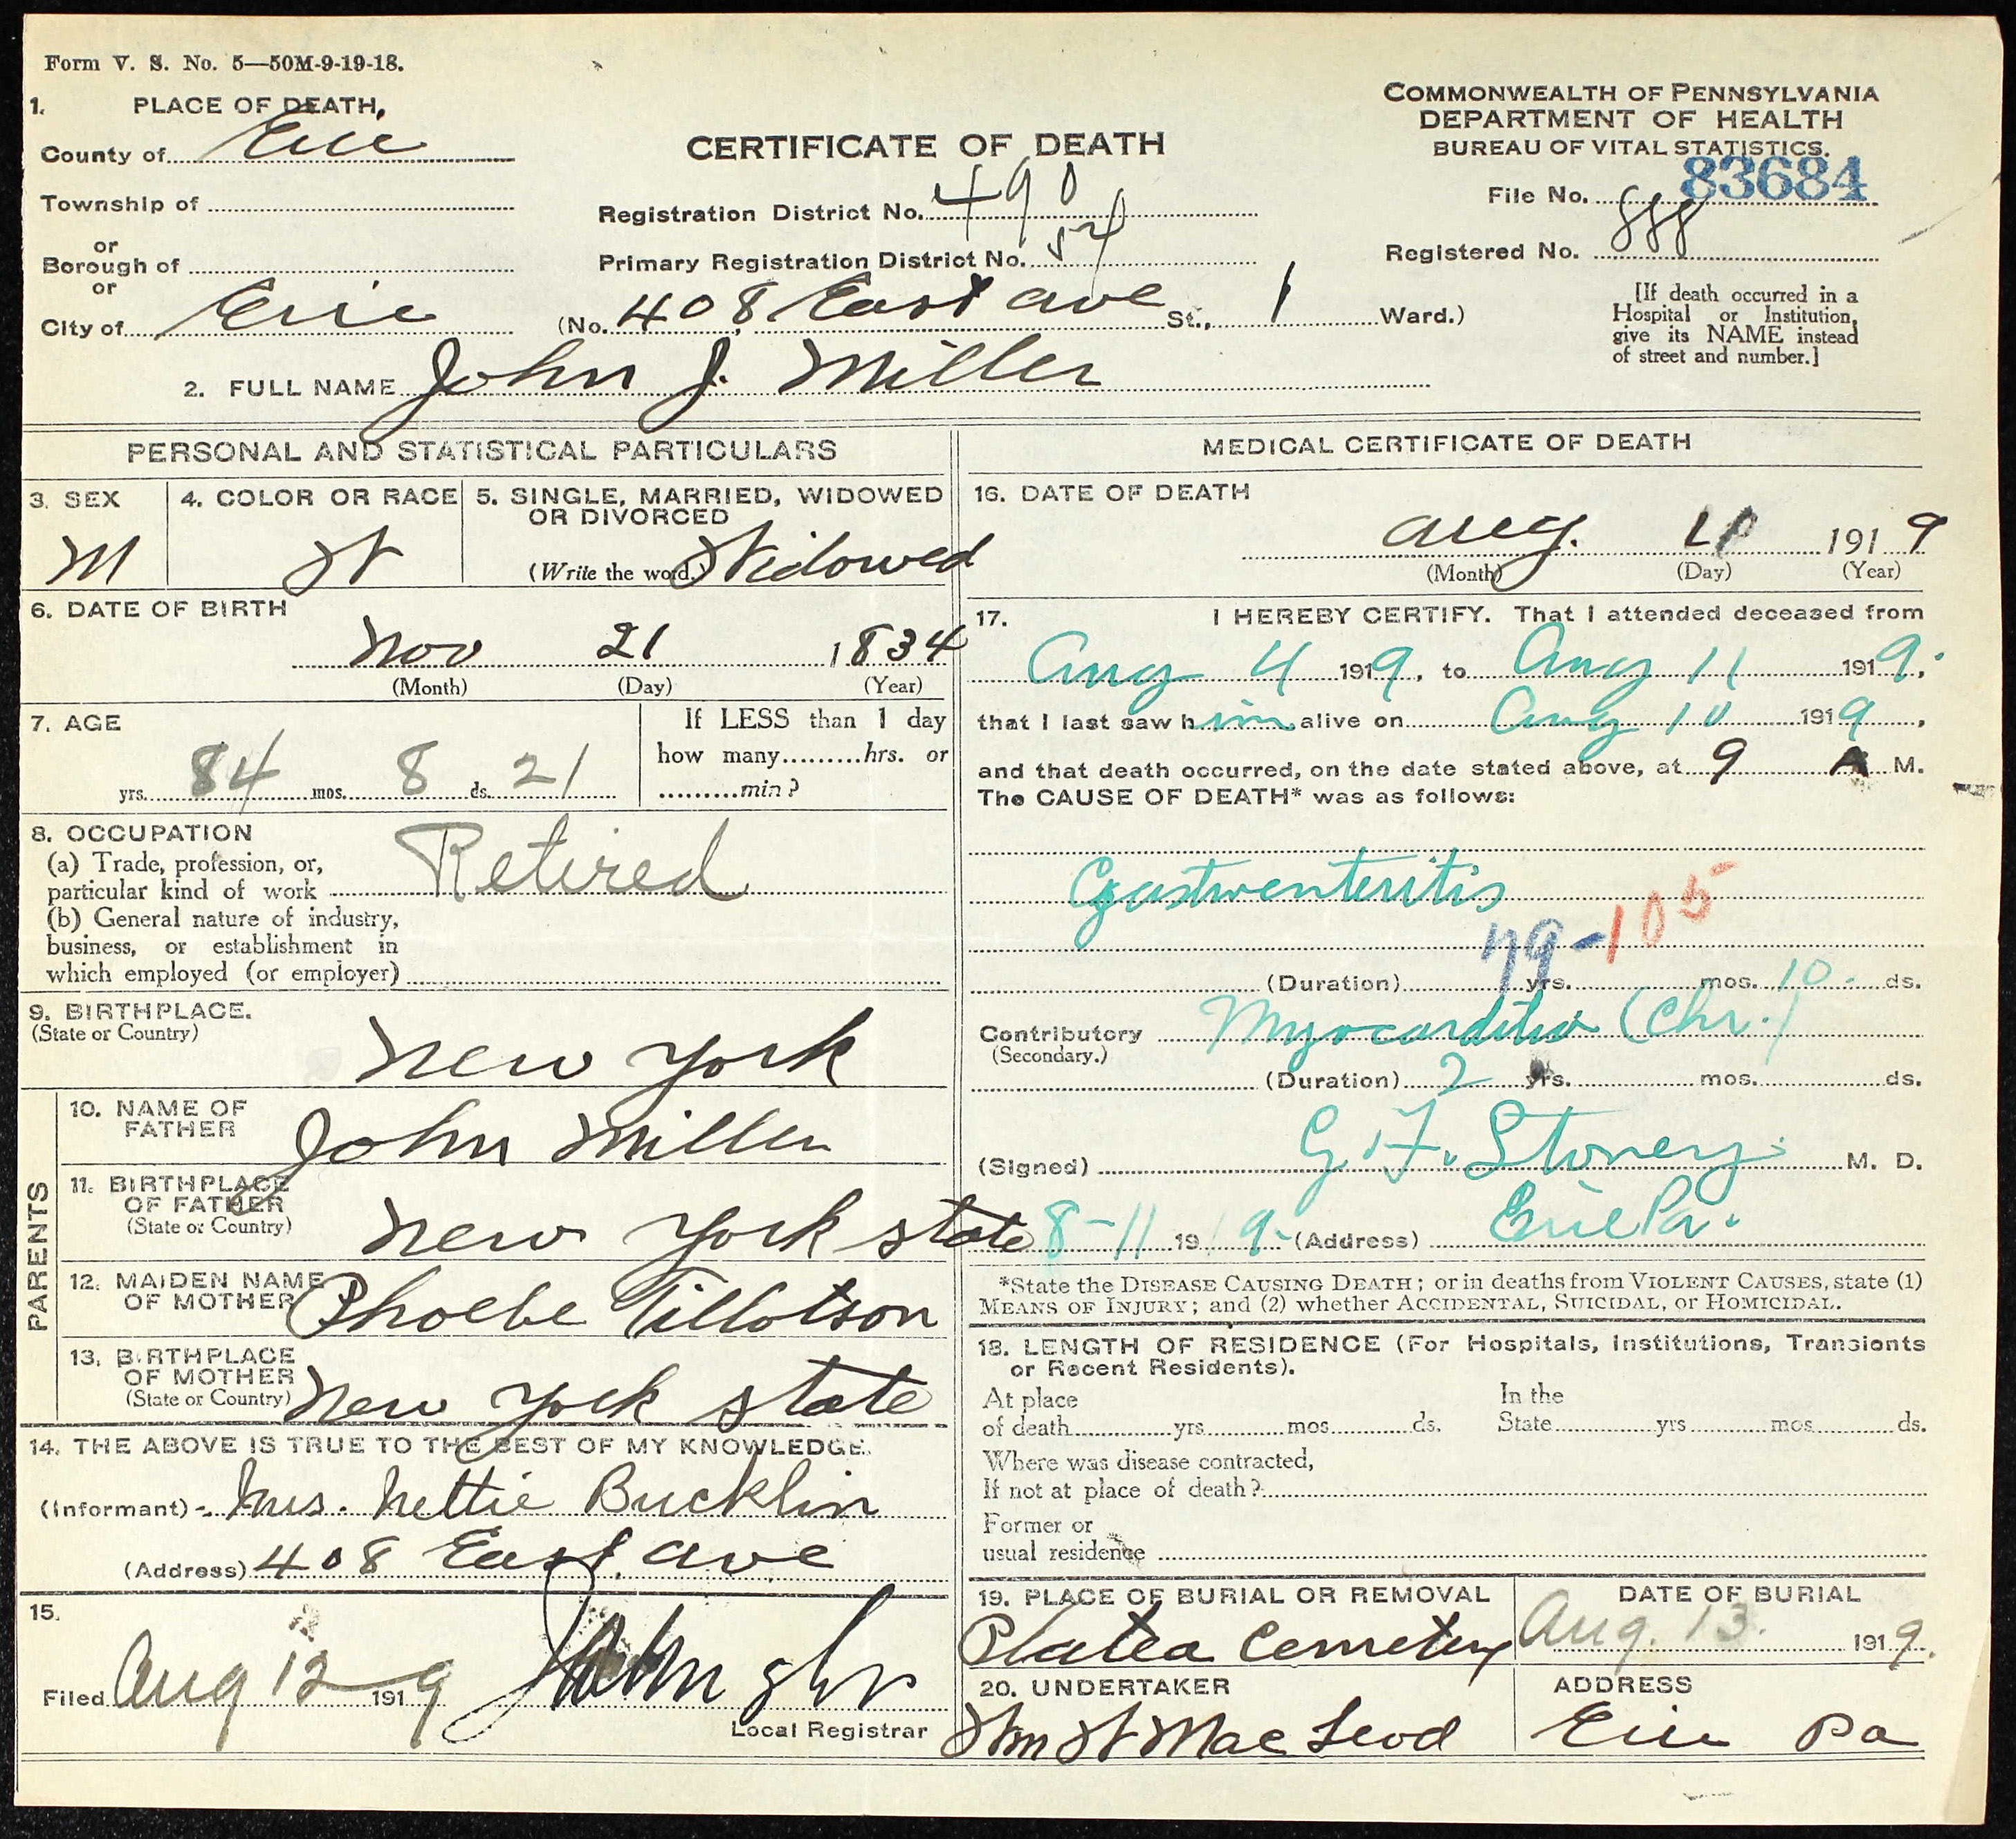 Form V. S. No. 5—50M-9-19-18.
1. PLACE OF DEATH,
County of Erie
Township of
or
Borough of
or
City of Erie
CERTIFICATE OF DEATH
Registration District No. 490
Primary Registration District No. 54
(No. 408 East ave St., 1 Ward.)
COMMONWEALTH OF PENNSYLVANIA
DEPARTMENT OF HEALTH
BUREAU OF VITAL STATISTICS.
File No. 83684
Registered No. 888
[If death occurred in a
Hospital or Institution,
give its NAME instead
of street and number.]
2. FULL NAME John J. Miller
PERSONAL AND STATISTICAL PARTICULARS
3. SEX
M
4. COLOR OR RACE
W
5. SINGLE, MARRIED, WIDOWED
OR DIVORCED
(Write the word.) Widowed
6. DATE OF BIRTH
Nov 21 1834
(Month) (Day) (Year)
7. AGE
84 yrs. 8 mos. 21 ds.
If LESS than 1 day
how many.........hrs. or
.........min?
8. OCCUPATION
(a) Trade, profession, or,
particular kind of work Retired
(b) General nature of industry,
business, or establishment in
which employed (or employer)
9. BIRTHPLACE.
(State or Country)
New York
PARENTS
10. NAME OF
FATHER
John Miller
11. BIRTHPLACE
OF FATHER
(State or Country)
New York state
12. MAIDEN NAME
OF MOTHER
Phoebe Tillotson
13. BIRTHPLACE
OF MOTHER
(State or Country)
New York state
14. THE ABOVE IS TRUE TO THE BEST OF MY KNOWLEDGE.
(Informant) Mrs. Nettie Bucklin
(Address) 408 East ave
15.
Filed Aug 12 1919
Local Registrar
MEDICAL CERTIFICATE OF DEATH
16. DATE OF DEATH
Aug. 1919
(Month) (Day) (Year)
17. I HEREBY CERTIFY. That I attended deceased from
Aug 4 1919, to Aug 11 1919,
that I last saw him alive on Aug 10 1919,
and that death occurred, on the date stated above, at 9 A M.
The CAUSE OF DEATH* was as follows:
Gastroenteritis
79-105
(Duration) yrs. mos. 10 ds.
Contributory Myocarditis (Chr.)
(Secondary.)
(Duration) 2 yrs. mos. ds.
(Signed) G. F. Stoney M. D.
8-11 1919 (Address) Erie Pa.
*State the DISEASE CAUSING DEATH; or in deaths from VIOLENT CAUSES, state (1)
MEANS OF INJURY; and (2) whether ACCIDENTAL, SUICIDAL, or HOMICIDAL.
18. LENGTH OF RESIDENCE (For Hospitals, Institutions, Transients
or Recent Residents).
At place
of death yrs mos ds.
In the
State yrs mos ds.
Where was disease contracted,
If not at place of death?
Former or
usual residence
19. PLACE OF BURIAL OR REMOVAL
Platea Cemetery
DATE OF BURIAL
Aug. 13. 1919.
20. UNDERTAKER
Wm W MacLeod
ADDRESS
Erie Pa